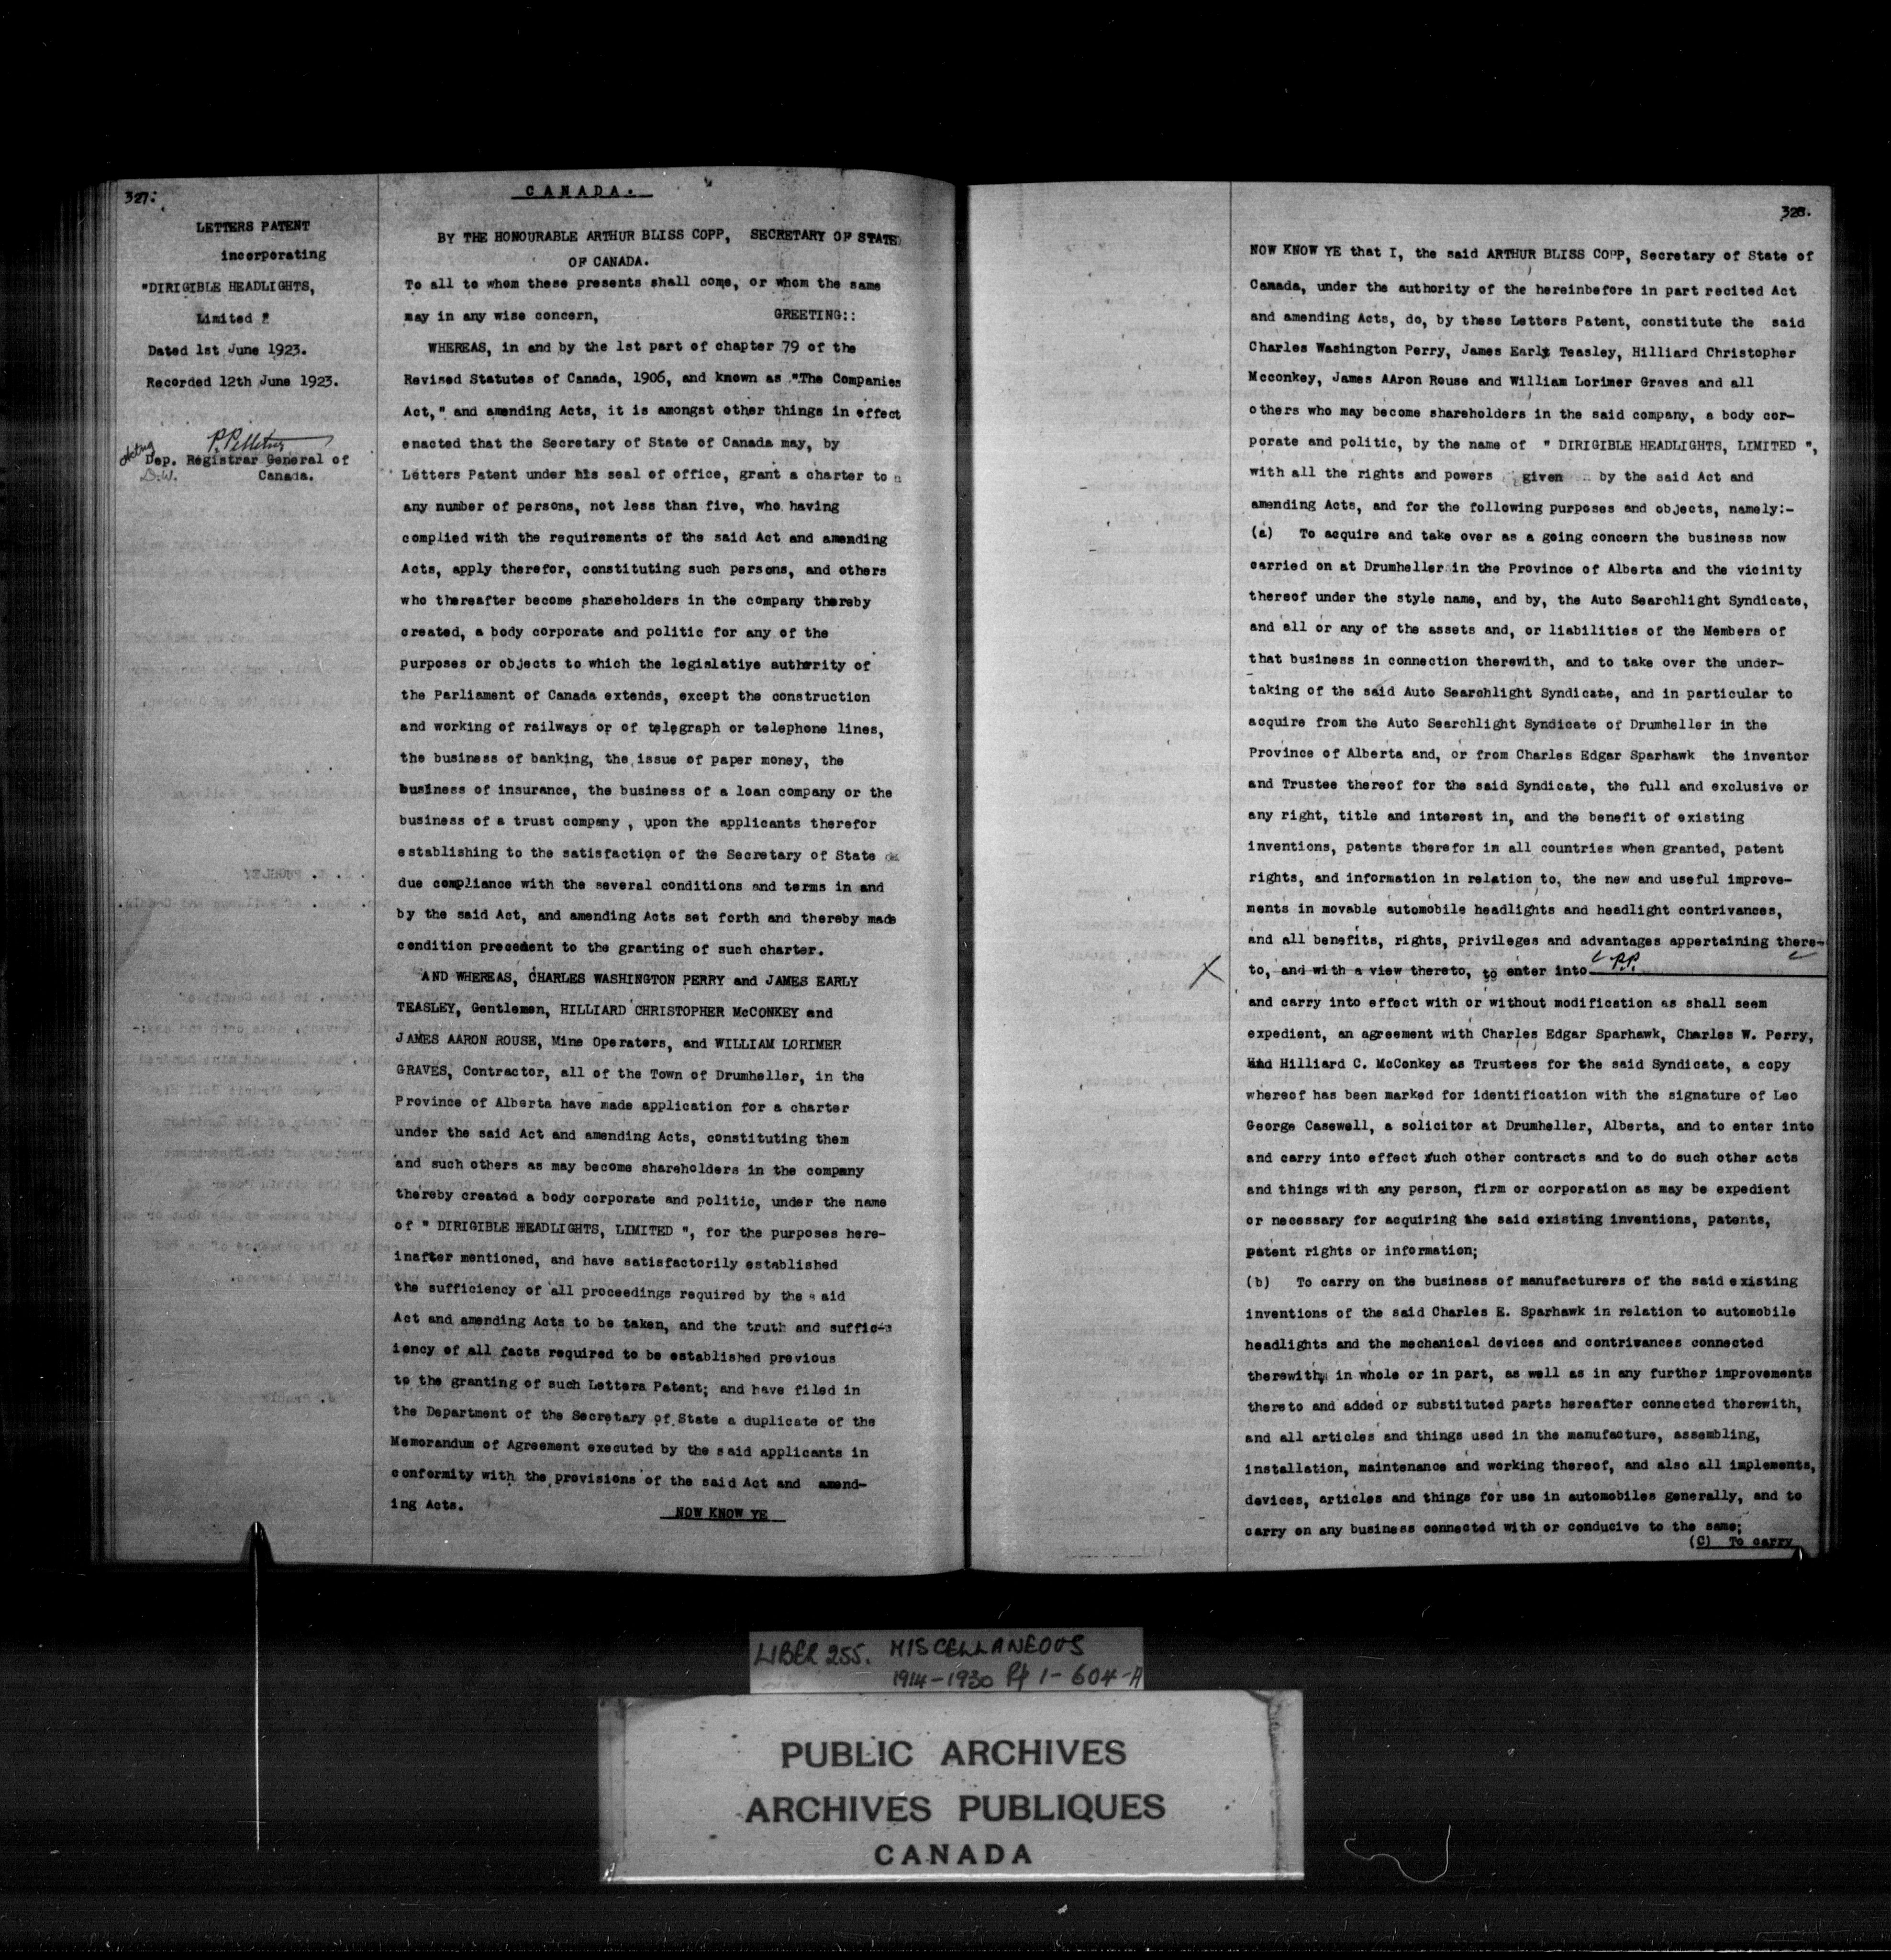 327.
LETTERS PATENT
incorporating
"DIRIGIBLE HEADLIGHTS,
Limited "
Dated 1st June 1923.
Recorded 12th June 1923.
P. Pelletier
Acting
Dep. Registrar General of
D.W. Canada.
CANADA.
BY THE HONOURABLE ARTHUR BLISS COPP, SECRETARY OF STATE
OF CANADA.
To all to whom these presents shall come, or whom the same
may in any wise concern, GREETING::
WHEREAS, in and by the 1st part of chapter 79 of the
Revised Statutes of Canada, 1906, and known as "The Companies
Act," and amending Acts, it is amongst other things in effect
enacted that the Secretary of State of Canada may, by
Letters Patent under his seal of office, grant a charter to
any number of persons, not less than five, who having
complied with the requirements of the said Act and amending
Acts, apply therefor, constituting such persons, and others
who thereafter become shareholders in the company thereby
created, a body corporate and politic for any of the
purposes or objects to which the legislative authority of
the Parliament of Canada extends, except the construction
and working of railways or of telegraph or telephone lines,
the business of banking, the issue of paper money, the
business of insurance, the business of a loan company or the
business of a trust company , upon the applicants therefor
establishing to the satisfaction of the Secretary of State
due compliance with the several conditions and terms in and
by the said Act, and amending Acts set forth and thereby made
condition precedent to the granting of such charter.
AND WHEREAS, CHARLES WASHINGTON PERRY and JAMES EARLY
TEASLEY, Gentlemen, HILLIARD CHRISTOPHER McCONKEY and
JAMES AARON ROUSE, Mine Operators, and WILLIAM LORIMER
GRAVES, Contractor, all of the Town of Drumheller, in the
Province of Alberta have made application for a charter
under the said Act and amending Acts, constituting them
and such others as may become shareholders in the company
thereby created a body corporate and politic, under the name
of " DIRIGIBLE HEADLIGHTS, LIMITED ", for the purposes here-
inafter mentioned, and have satisfactorily established
the sufficiency of all proceedings required by the said
Act and amending Acts to be taken, and the truth and suffic-
iency of all facts required to be established previous
to the granting of such Letters Patent; and have filed in
the Department of the Secretary of State a duplicate of the
Memorandum of Agreement executed by the said applicants in
conformity with the provisions of the said Act and amend-
ing Acts. NOW KNOW YE
328.
NOW KNOW YE that I, the said ARTHUR BLISS COPP, Secretary of State of
Canada, under the authority of the hereinbefore in part recited Act
and amending Acts, do, by these Letters Patent, constitute the said
Charles Washington Perry, James Early Teasley, Hilliard Christopher
Mcconkey, James AAron Rouse and William Lorimer Graves and all
others who may become shareholders in the said company, a body cor-
porate and politic, by the name of " DIRIGIBLE HEADLIGHTS, LIMITED ",
with all the rights and powers given by the said Act and
amending Acts, and for the following purposes and objects, namely:-
(a) To acquire and take over as a going concern the business now
carried on at Drumheller in the Province of Alberta and the vicinity
thereof under the style name, and by, the Auto Searchlight Syndicate,
and all or any of the assets and, or liabilities of the Members of
that business in connection therewith, and to take over the under-
taking of the said Auto Searchlight Syndicate, and in particular to
acquire from the Auto Searchlight Syndicate of Drumheller in the
Province of Alberta and, or from Charles Edgar Sparhawk the inventor
and Trustee thereof for the said Syndicate, the full and exclusive or
any right, title and interest in, and the benefit of existing
inventions, patents therefor in all countries when granted, patent
rights, and information in relation to, the new and useful improve-
ments in movable automobile headlights and headlight contrivances,
and all benefits, rights, privileges and advantages appertaining there-
X to, and with a view thereto, to enter into P.P.
and carry into effect with or without modification as shall seem
expedient, an agreement with Charles Edgar Sparhawk, Charles W. Perry,
and Hilliard C. McConkey as Trustees for the said Syndicate, a copy
whereof has been marked for identification with the signature of Leo
George Casewell, a solicitor at Drumheller, Alberta, and to enter into
and carry into effect such other contracts and to do such other acts
and things with any person, firm or corporation as may be expedient
or necessary for acquiring the said existing inventions, patents,
patent rights or information;
(b) To carry on the business of manufacturers of the said existing
inventions of the said Charles E. Sparhawk in relation to automobile
headlights and the mechanical devices and contrivances connected
therewith, in whole or in part, as well as in any further improvements
thereto and added or substituted parts hereafter connected therewith,
and all articles and things used in the manufacture, assembling,
installation, maintenance and working thereof, and also all implements,
devices, articles and things for use in automobiles generally, and to
carry on any business connected with or conducive to the same;
(C) To carry
LIBER 255. MISCELLANEOUS
1914-1930 Pf 1-604-A
PUBLIC ARCHIVES
ARCHIVES PUBLIQUES
CANADA